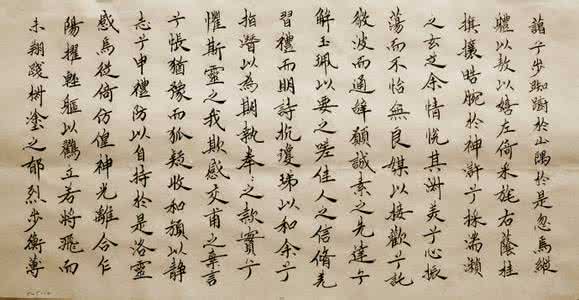 藹兮步踟躕於山隅於是忽焉縱
體以敖以嬉左倚采旄右蔭桂
旗攘皓腕於神滸兮採湍瀨
之玄芝余情悅其淑美兮心振
蕩而不怡無良媒以接歡兮託
微波而通辭願誠素之先達兮
解玉珮以要之嗟佳人之信脩羌
習禮而明詩抗瓊珶以和余兮
指潛以為期執拳々之款實兮
懼斯靈之我欺感交甫之棄言
兮悵猶豫而狐疑收和顏以靜
志兮申禮防以自持於是洛靈
感焉徙倚仿偟神光離合乍
陽擢輕軀以鶴立若將飛而
未翔踐椒塗之郁烈步衡薄